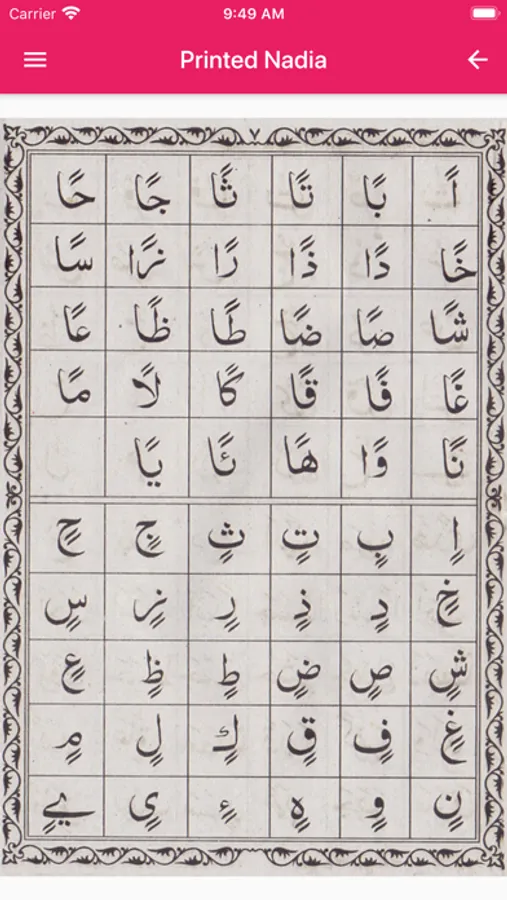 Carrier 9:49 AM
Printed Nadia
٧
اً بًا تًا ثًا جًا حًا
خًا دًا ذًا رًا زًا سًا
شًا صًا ضًا طًا ظًا عًا
غًا فًا قًا كًا لًا مًا
نًا وًا هًا ئًا يًا
اٍ بٍ تٍ ثٍ جٍ حٍ
خٍ دٍ ذٍ رٍ زٍ سٍ
شٍ صٍ ضٍ طٍ ظٍ عٍ
غٍ فٍ قٍ كٍ لٍ مٍ
نٍ وٍ هٍ ءٍ یٍ ےٍ